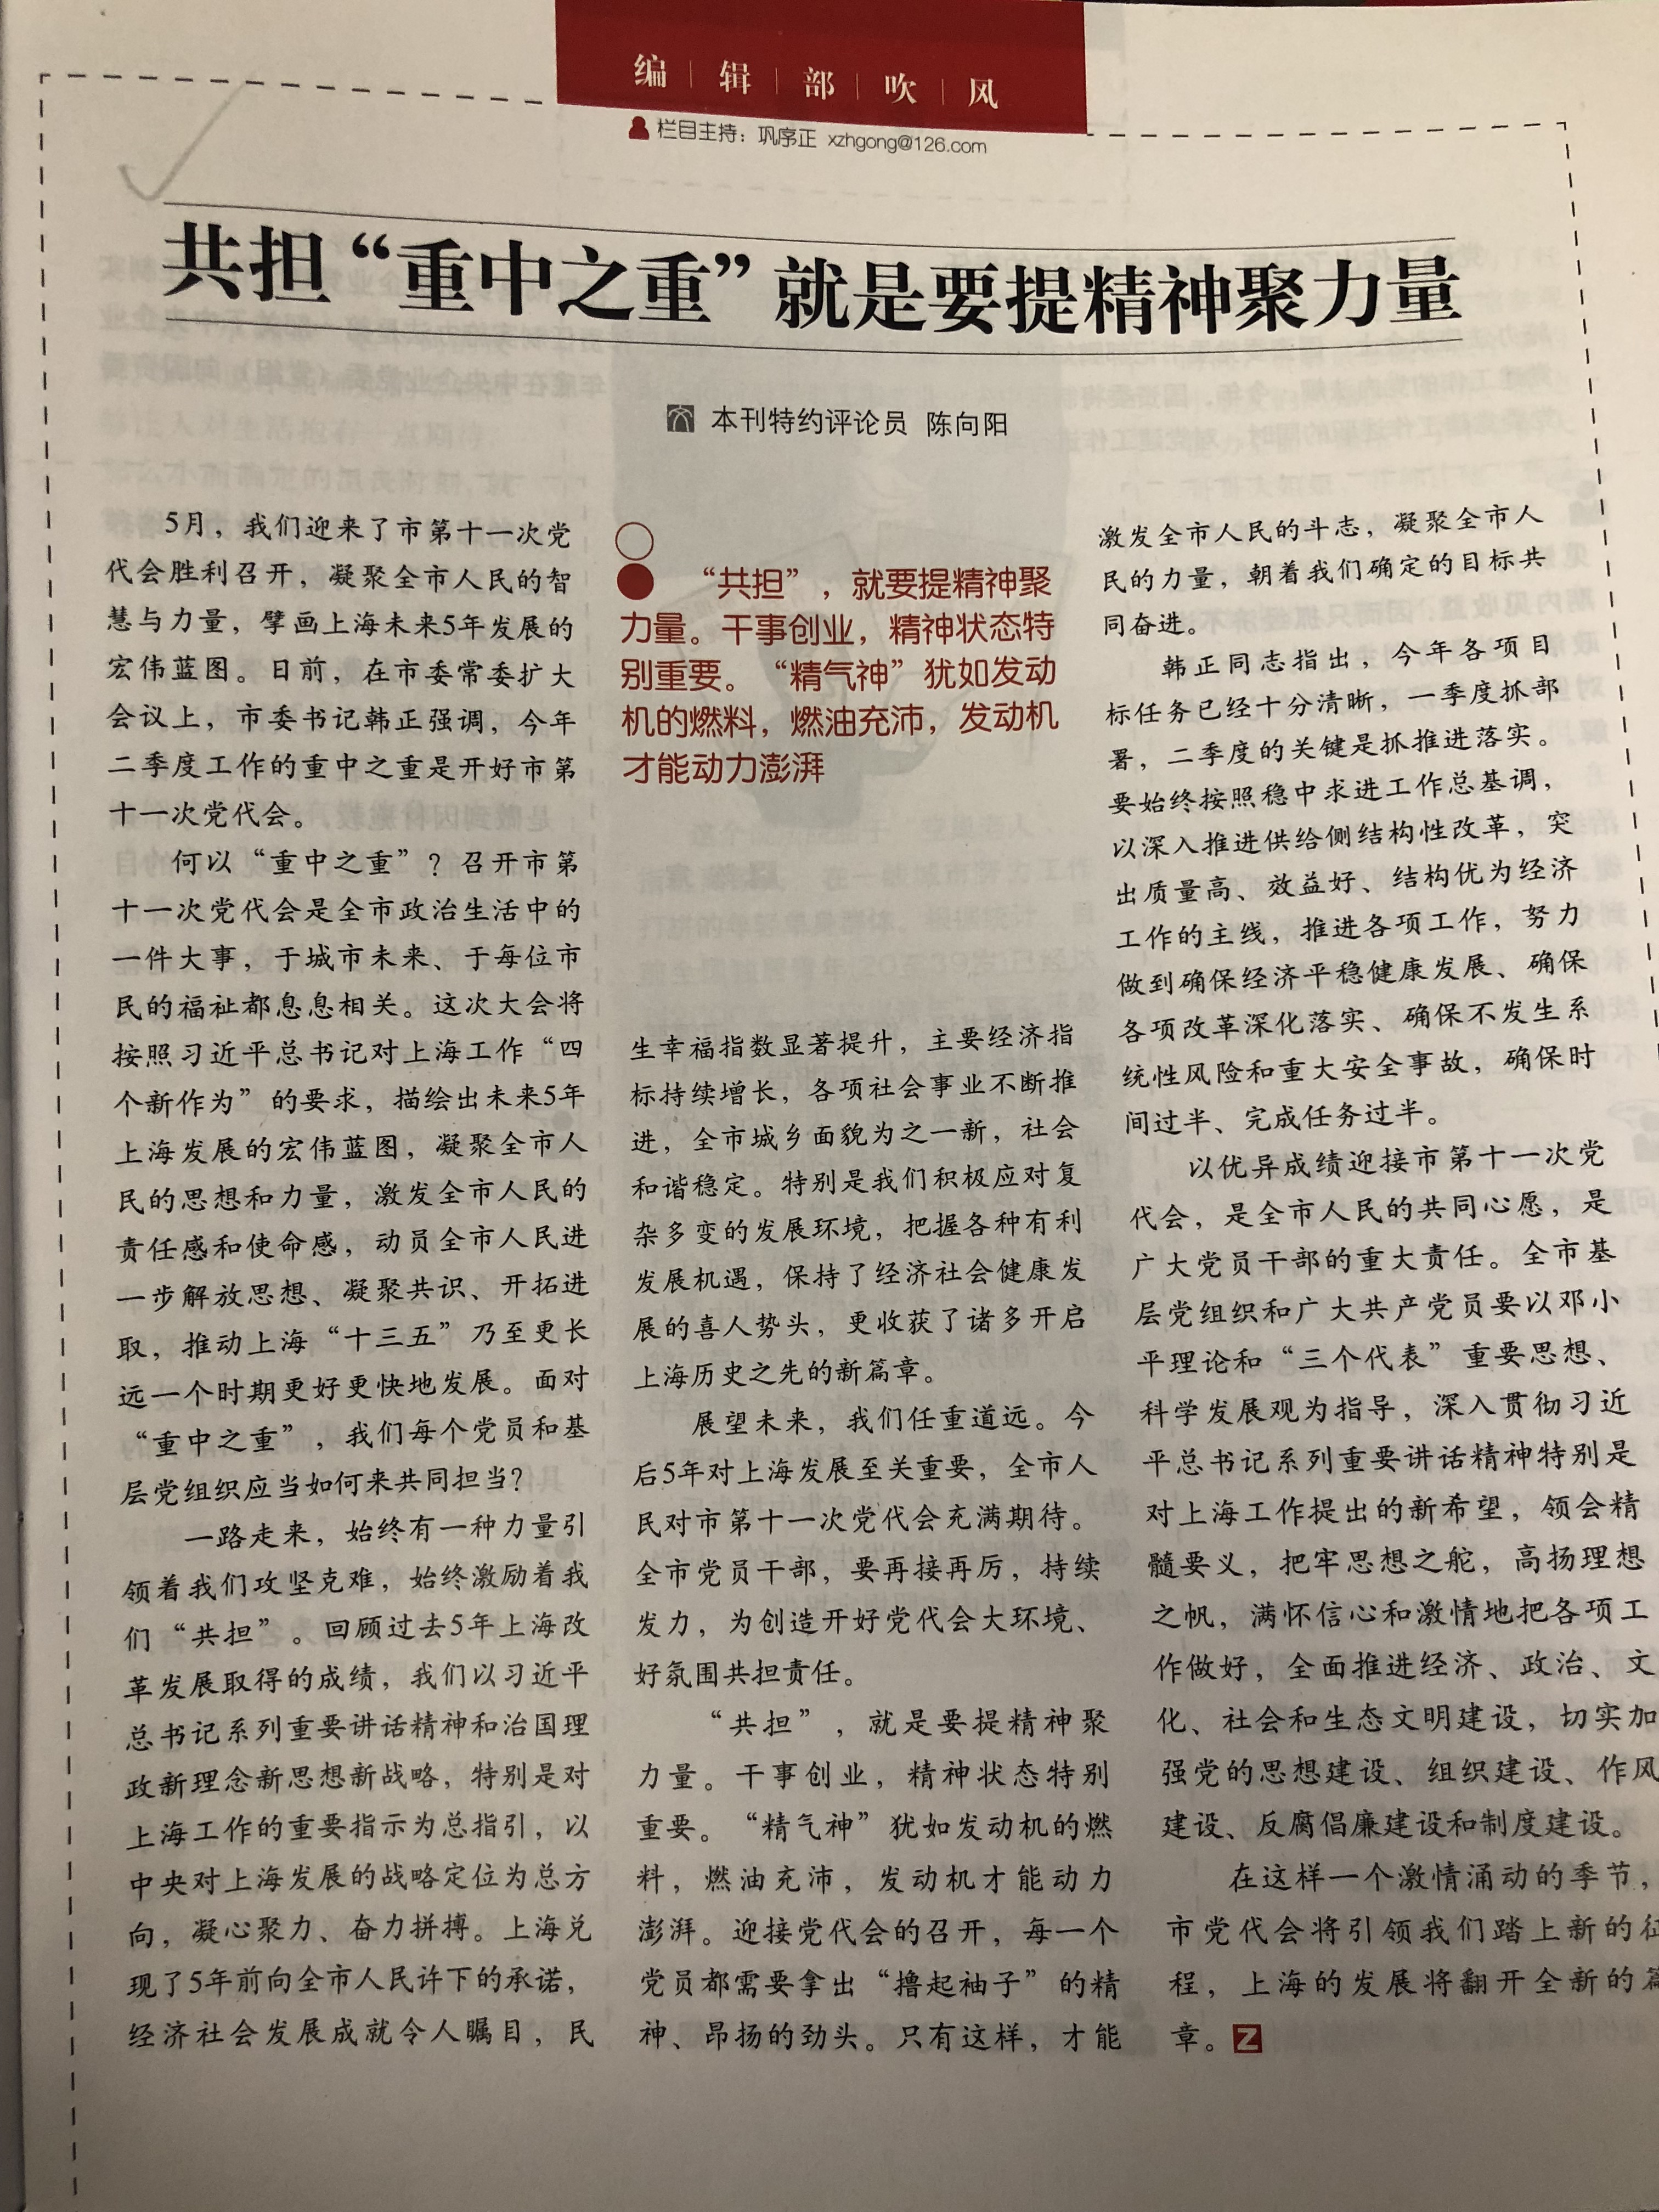 编辑部吹风
栏目主持：巩序正 xzhgong@126.com
共担“重中之重”就是要提精神聚力量
本刊特约评论员 陈向阳
5月，我们迎来了市第十一次党
代会胜利召开，凝聚全市人民的智
慧与力量，擘画上海未来5年发展的
宏伟蓝图。日前，在市委常委扩大
会议上，市委书记韩正强调，今年
二季度工作的重中之重是开好市第
十一次党代会。
何以“重中之重”？召开市第
十一次党代会是全市政治生活中的
一件大事，于城市未来、于每位市
民的福祉都息息相关。这次大会将
按照习近平总书记对上海工作“四
个新作为”的要求，描绘出未来5年
上海发展的宏伟蓝图，凝聚全市人
民的思想和力量，激发全市人民的
责任感和使命感，动员全市人民进
一步解放思想、凝聚共识、开拓进
取，推动上海“十三五”乃至更长
远一个时期更好更快地发展。面对
“重中之重”，我们每个党员和基
层党组织应当如何来共同担当？
一路走来，始终有一种力量引
领着我们攻坚克难，始终激励着我
们“共担”。回顾过去5年上海改
革发展取得的成绩，我们以习近平
总书记系列重要讲话精神和治国理
政新理念新思想新战略，特别是对
上海工作的重要指示为总指引，以
中央对上海发展的战略定位为总方
向，凝心聚力、奋力拼搏。上海兑
现了5年前向全市人民许下的承诺，
经济社会发展成就令人瞩目，民
“共担”，就要提精神聚
力量。干事创业，精神状态特
别重要。“精气神”犹如发动
机的燃料，燃油充沛，发动机
才能动力澎湃
生幸福指数显著提升，主要经济指
标持续增长，各项社会事业不断推
进，全市城乡面貌为之一新，社会
和谐稳定。特别是我们积极应对复
杂多变的发展环境，把握各种有利
发展机遇，保持了经济社会健康发
展的喜人势头，更收获了诸多开启
上海历史之先的新篇章。
展望未来，我们任重道远。今
后5年对上海发展至关重要，全市人
民对市第十一次党代会充满期待。
全市党员干部，要再接再厉，持续
发力，为创造开好党代会大环境、
好氛围共担责任。
“共担”，就是要提精神聚
力量。干事创业，精神状态特别
重要。“精气神”犹如发动机的燃
料，燃油充沛，发动机才能动力
澎湃。迎接党代会的召开，每一个
党员都需要拿出“撸起袖子”的精
神、昂扬的劲头。只有这样，才能
激发全市人民的斗志，凝聚全市人
民的力量，朝着我们确定的目标共
同奋进。
韩正同志指出，今年各项目
标任务已经十分清晰，一季度抓部
署，二季度的关键是抓推进落实。
要始终按照稳中求进工作总基调，
以深入推进供给侧结构性改革，突
出质量高、效益好、结构优为经济
工作的主线，推进各项工作，努力
做到确保经济平稳健康发展、确保
各项改革深化落实、确保不发生系
统性风险和重大安全事故，确保时
间过半、完成任务过半。
以优异成绩迎接市第十一次党
代会，是全市人民的共同心愿，是
广大党员干部的重大责任。全市基
层党组织和广大共产党员要以邓小
平理论和“三个代表”重要思想、
科学发展观为指导，深入贯彻习近
平总书记系列重要讲话精神特别是
对上海工作提出的新希望，领会精
髓要义，把牢思想之舵，高扬理想
之帆，满怀信心和激情地把各项工
作做好，全面推进经济、政治、文
化、社会和生态文明建设，切实加
强党的思想建设、组织建设、作风
建设、反腐倡廉建设和制度建设。
在这样一个激情涌动的季节，
市党代会将引领我们踏上新的征
程，上海的发展将翻开全新的篇
章。Z